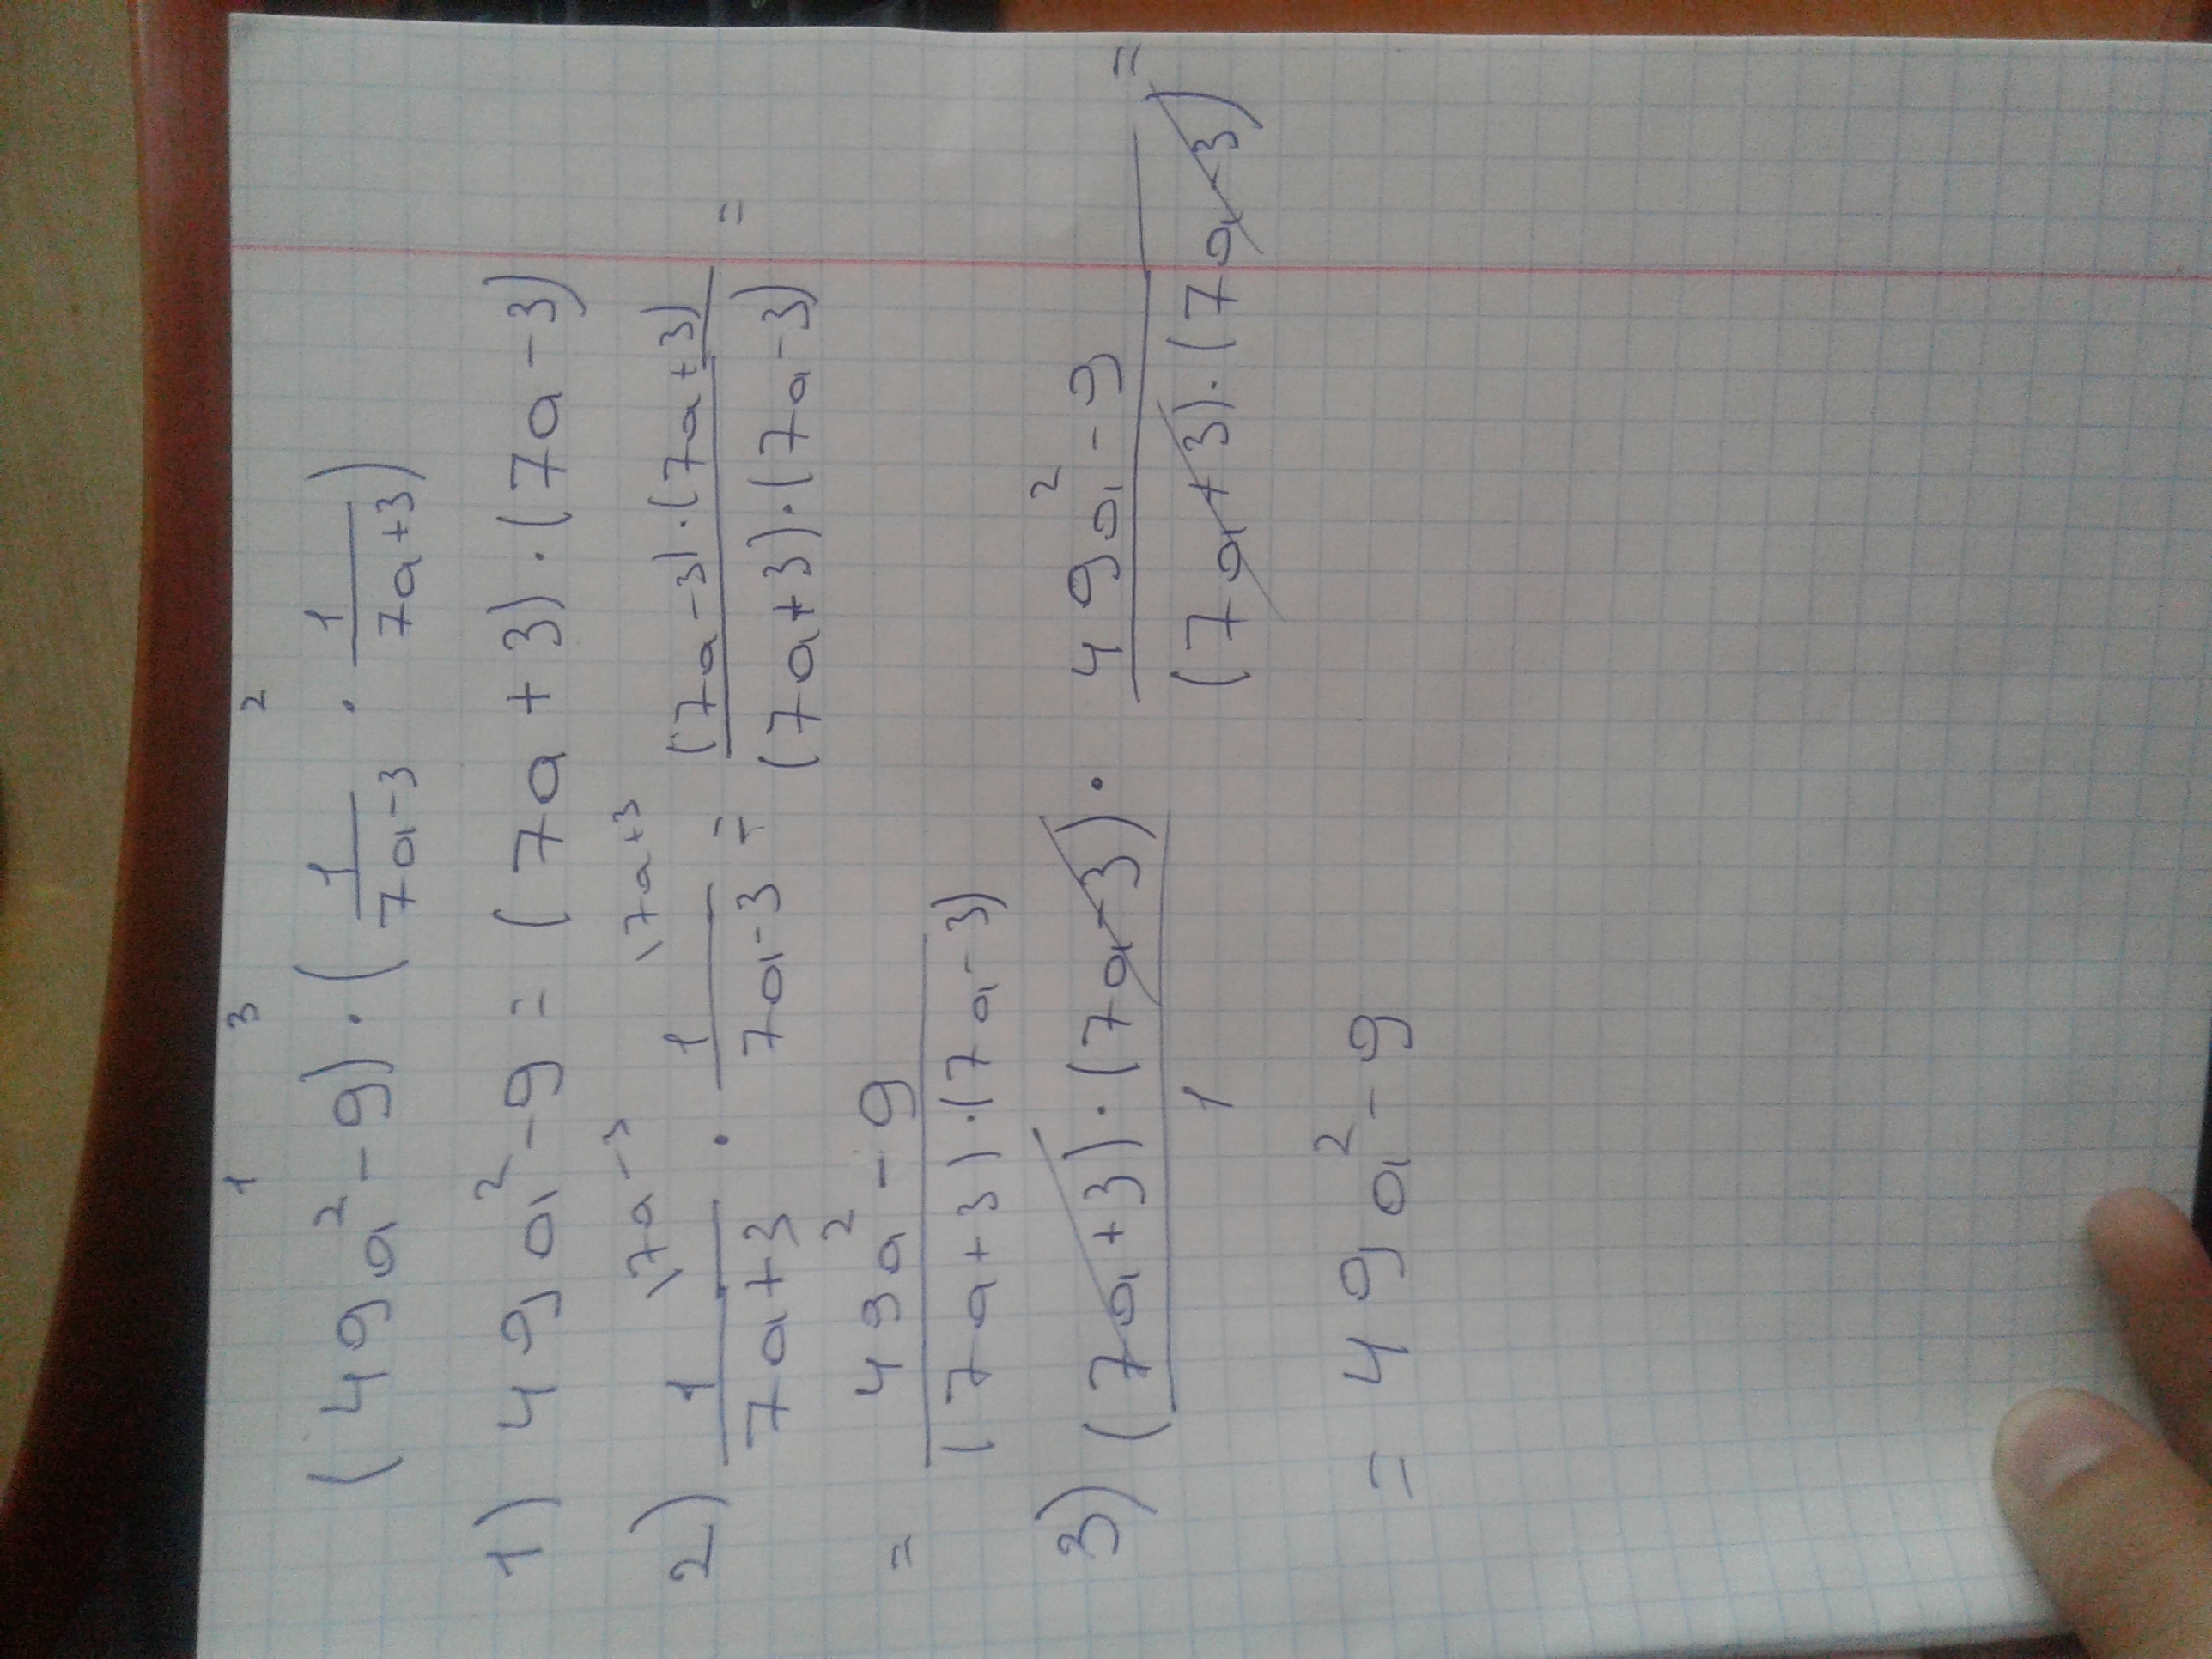 1 3 2
(49a² - 9) · (1/(7a-3) · 1/(7a+3))
1) 49a² - 9 = (7a + 3) · (7a - 3)
\7a-3 \7a+3
2) 1/(7a+3) · 1/(7a-3) = ((7a-3) · (7a+3))/((7a+3) · (7a-3)) =
= (49a² - 9)/((7a+3) · (7a-3))
3) ((7a+3) · (7a-3))/1 · (49a² - 9)/((7a+3) · (7a-3)) =
= 49a² - 9